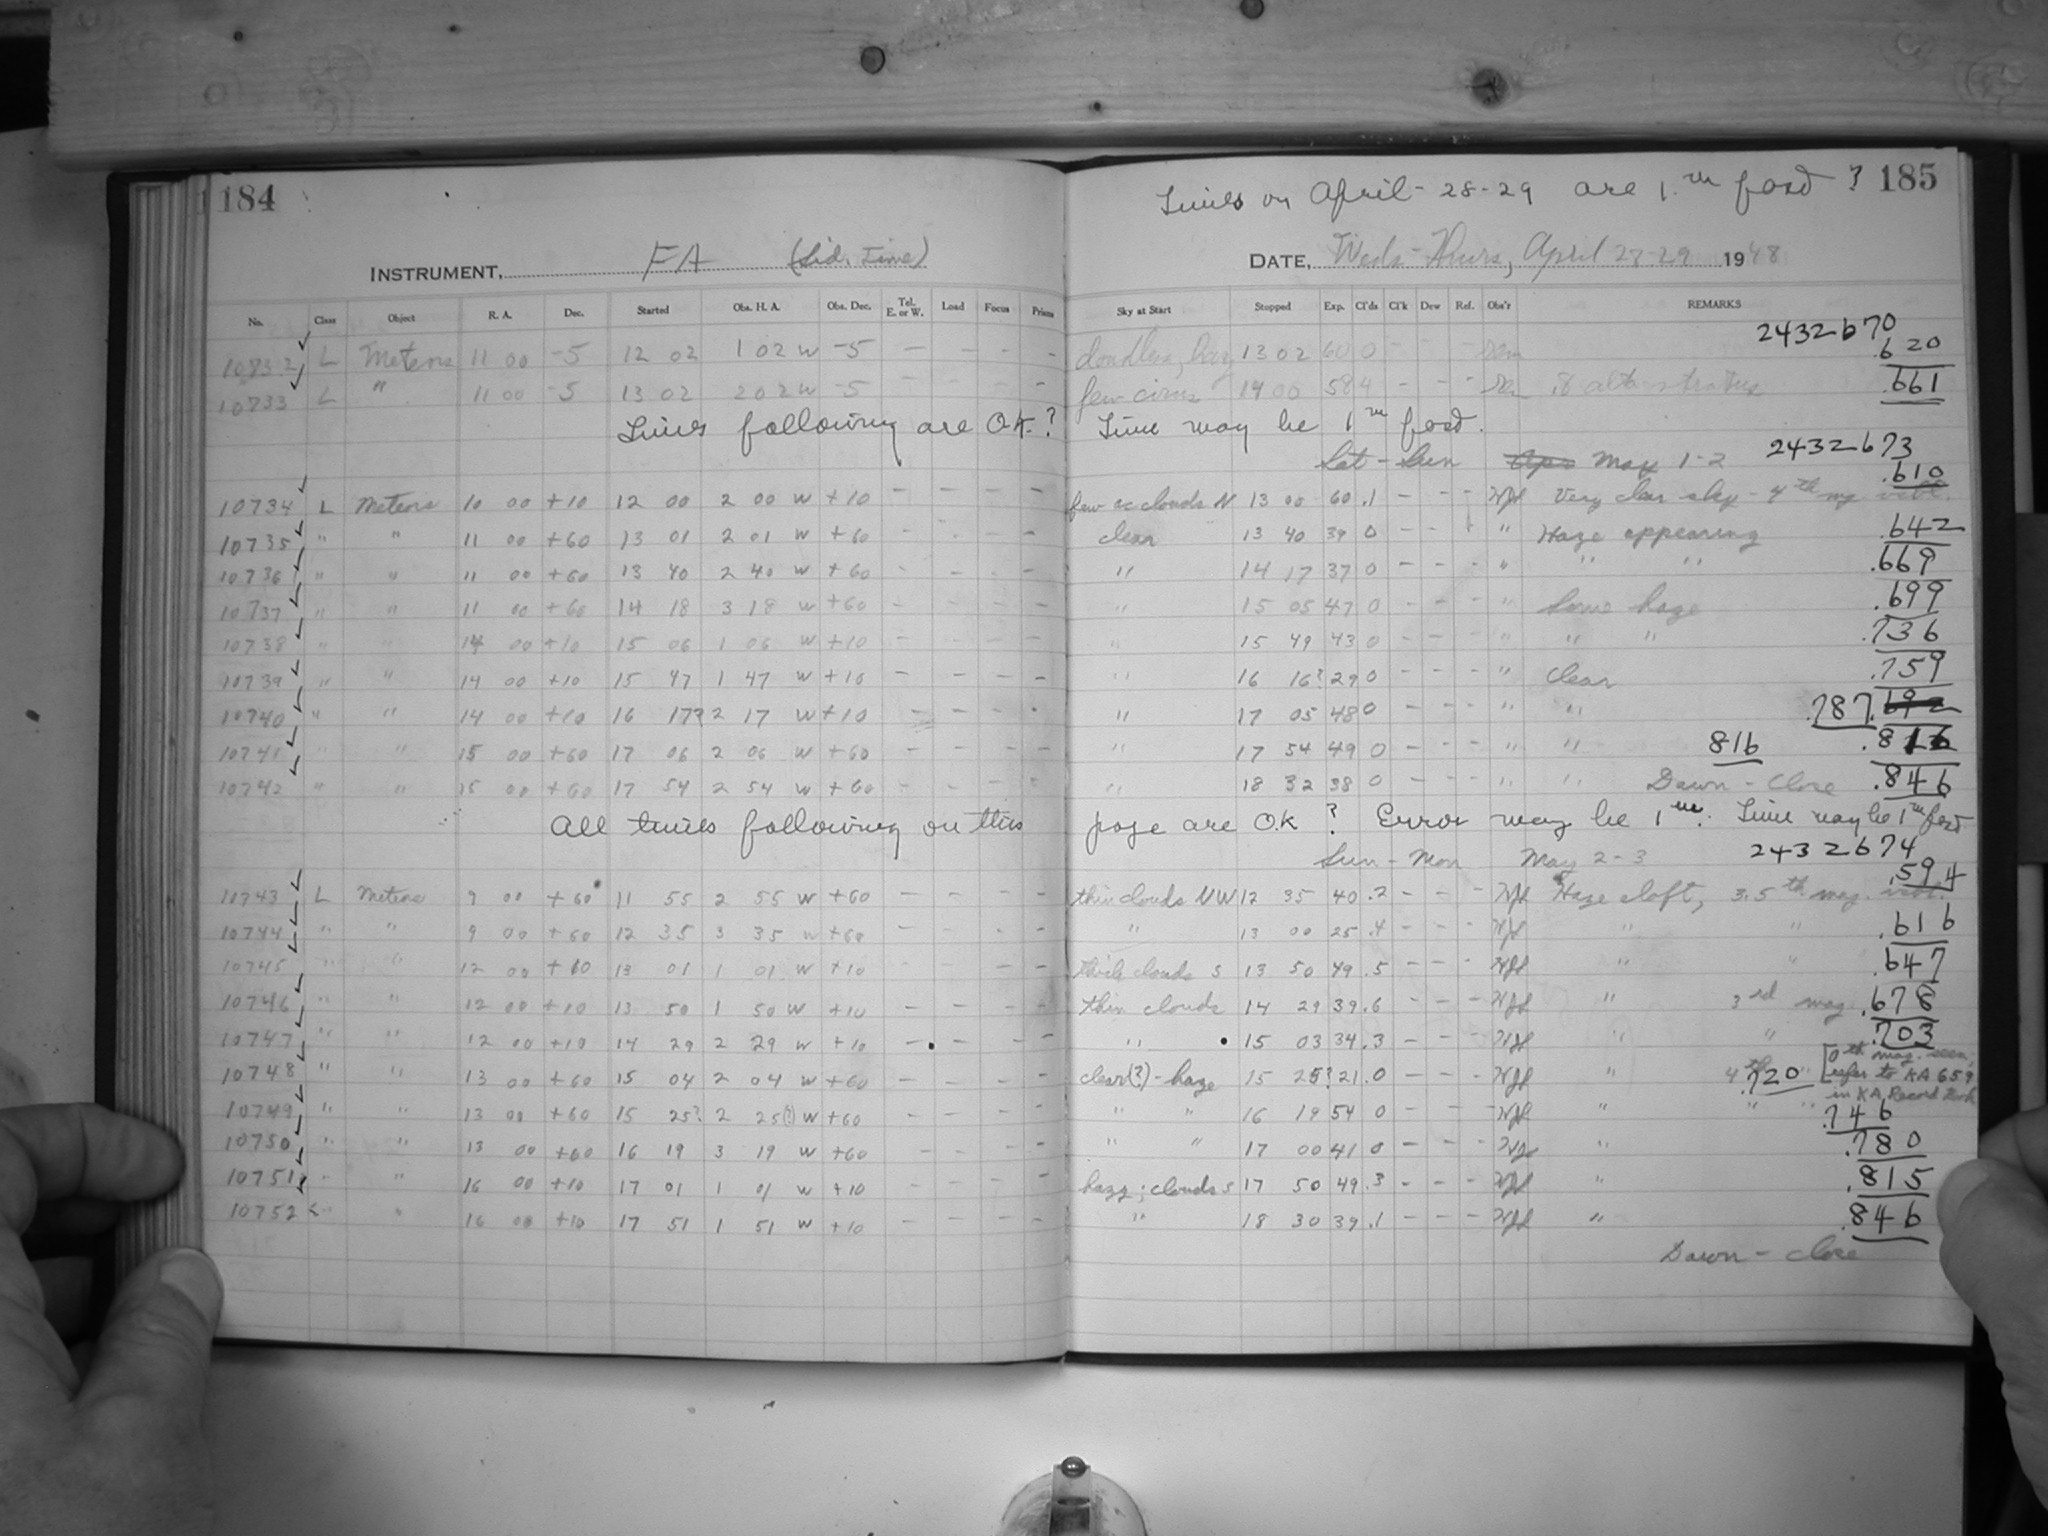 184
Times on April - 28-29 are 1.m fast ? 185
INSTRUMENT, FA (Sid. Time) DATE, Weds - Thurs, April 28-29 1948
No. Class Object R. A. Dec. Started Obs. H. A. Obs. Dec. Tel. E. or W. Load Focus Prisms Sky at Start Stopped Exp. Cl'ds Cl'k Dew Ref. Obs'r REMARKS
2432670
10732 L Meteors 11 00 -5 12 02 1 02 W -5 — — — cloudless, hazy 13 02 60 0 - - - .620
10733 L " 11 00 -5 13 02 2 02 W -5 - - - - few cirrus 14 00 58 4 - - - .8 alto stratus .661
Times following are OK.? Time may be 1m fast.
Sat - Sun May 1-2 2432673
.610
10734 L Meteors 10 00 +10 12 00 2 00 W +10 - - - - few cc clouds N 13 00 60 .1 - - - Very clear sky - 4th mg visbl.
10735 " " 11 00 +60 13 01 2 01 W +60 - - - - clear 13 40 39 0 - - " Haze appearing .642
10736 " " 11 00 +60 13 40 2 40 W +60 - - - - " 14 17 37 0 - - - " " " .669
10737 " " 11 00 +60 14 18 3 18 W +60 - - - - " 15 05 47 0 - - - " Some haze .699
10738 " " 14 00 +10 15 06 1 06 W +10 - - - - " 15 49 43 0 - - - " " " .736
10739 " " 14 00 +10 15 47 1 47 W +10 - - - - " 16 16? 29 0 - - - " clear .759
10740 " " 14 00 +10 16 17? 2 17 W +10 - - - - " 17 05 48 0 - - - " " .787
10741 " " 15 00 +60 17 06 2 06 W +60 - - - - " 17 54 49 0 - - - " " 816 .816
10742 " " 15 00 +60 17 54 2 54 W +60 - - - - " 18 32 38 0 - - - " " Dawn - Close .846
All times following on this page are OK ? Error may be 1m. Time may be 1m fast
Sun - Mon May 2-3 2432674
.594
10743 L Meteors 9 00 +60 11 55 2 55 W +60 - - - - thin clouds NW 12 35 40 .2 - - - Haze aloft, 3.5th mag. visbl.
10744 " " 9 00 +60 12 35 3 35 W +60 - - - - " 13 00 25 .4 - - - " " .616
10745 " " 12 00 +10 13 01 1 01 W +10 - - - - thick clouds S 13 50 49 .5 - - - " " .647
10746 " " 12 00 +10 13 50 1 50 W +10 - - - - thin clouds 14 29 39 .6 - - - " 3rd mag. .678
10747 " " 12 00 +10 14 29 2 29 W +10 - - - - " 15 03 34 .3 - - - " " .703
10748 " " 13 00 +60 15 04 2 04 W +60 - - - - clear(?) - haze 15 25? 21 .0 - - - " 4th " .720 [0th mag. seen, refer to KA 659 in KA Record Book
10749 " " 13 00 +60 15 25? 2 25(?) W +60 - - - - " " 16 19 54 0 - - - " " " .746
10750 " " 13 00 +60 16 19 3 19 W +60 - - - - " " 17 00 41 0 - - - " .780
10751 " " 16 00 +10 17 01 1 01 W +10 - - - - hazy; clouds S 17 50 49 .3 - - - " .815
10752 " " 16 00 +10 17 51 1 51 W +10 - - - - " 18 30 39 .1 - - - " .846
Dawn - close